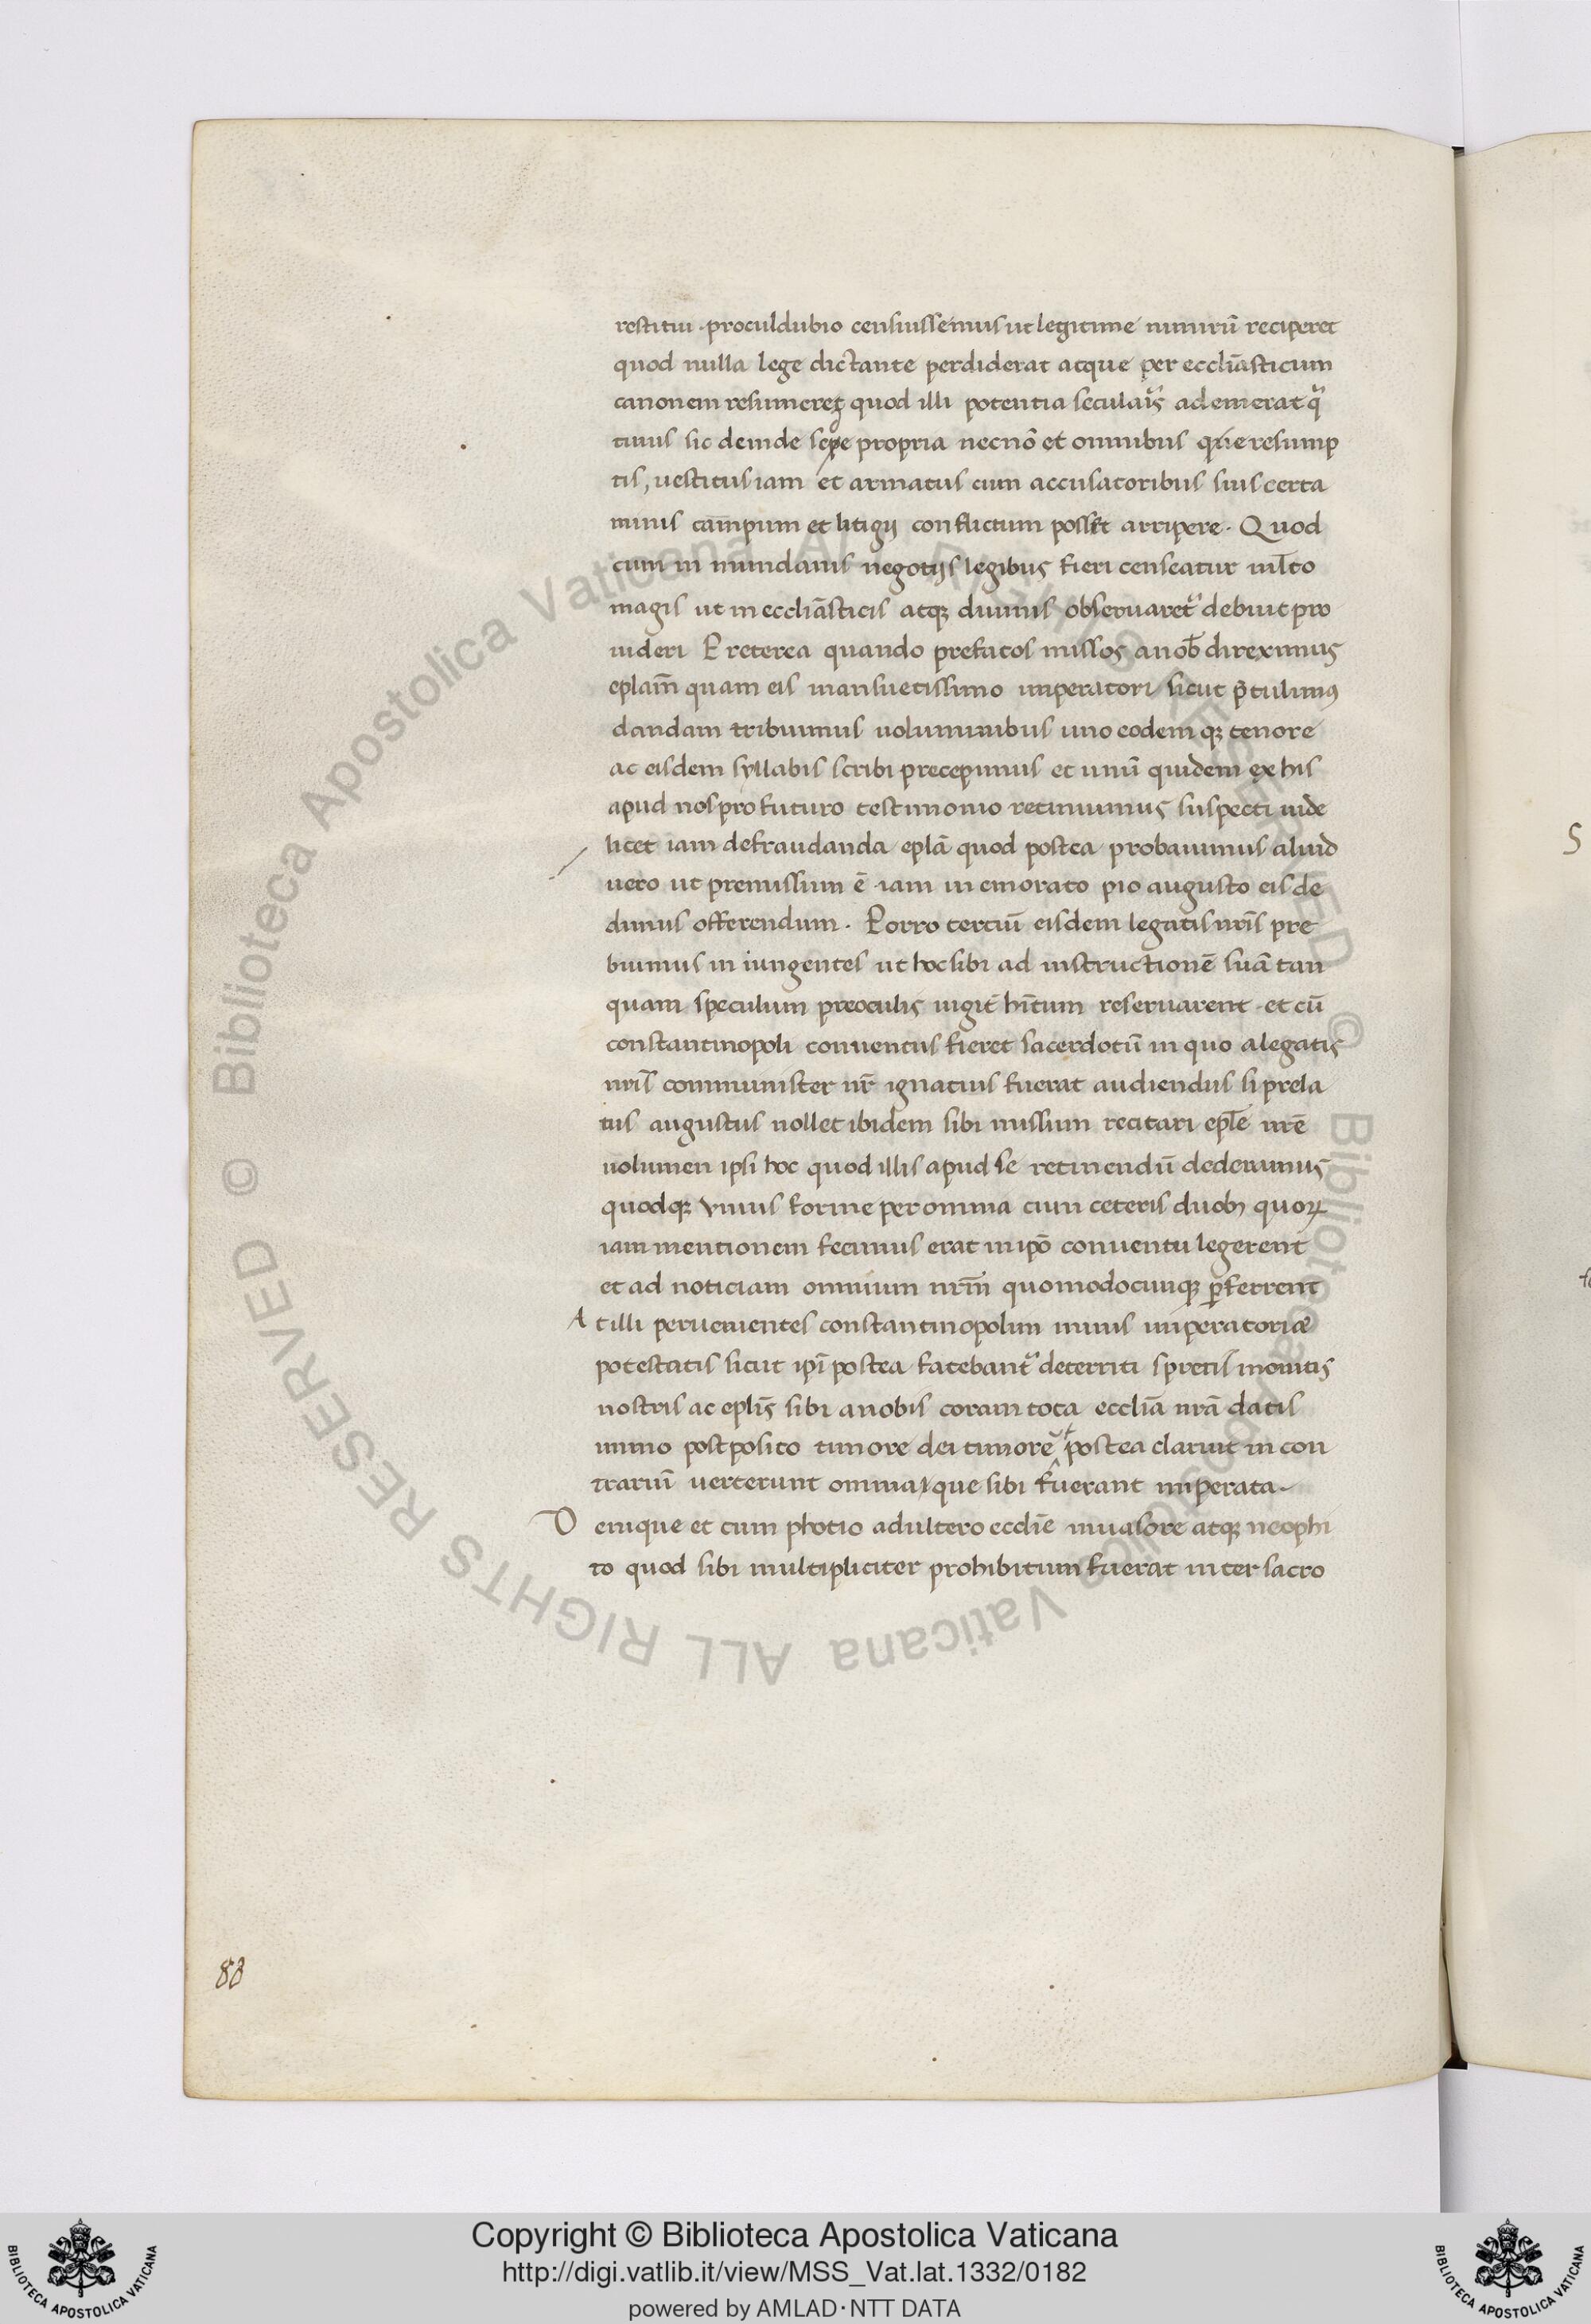 restitui · proculdubio censuissemus ut legitime nimirũ reciperet
quod nulla lege dictante perdiderat atque per eccliãsticum
canonem resumeret quod illi potentia seculais ademerat q
tinus sic deinde sepe propria necnõ et omnibus q̃ie resump
tis, uestitus iam et armatus cum accusatoribus suis certa
minis campum et litigij conflictum posset arripere · Quod
cum in mundanis negotijs legibus fieri censeatur mĩto
magis ut in eccliãsticis atqꝫ diuinis obseruaret᷑ debuit pro
uideri Preterea quando prefatos missos a nob̃ direximus
eplam̃ quam eis mansuetissimo imperatori sicut p̃tulimꝰ
dandam tribuimus uoluminibus uno eodemqꝫ tenore
ac eisdem syllabis scribi precepimus et unũ quidem ex his
apud nos pro futuro testimonio retinuimus suspecti uide
licet iam defraudanda eplã quod postea probauimus aliud
uero ut premissum ẽ · iam memorato pio augusto eis de
dimus offerendum · Porro terciũ eisdem legatis nr̃is pre
buimus iniungentes ut hoc sibi ad instructionẽ suã tan
quam speculum preoculis iugit̃ hitum reseruarent · et cũ
constantinopoli conuentus fieret sacerdotũ in quo a legatis
nr̃is communister nr̃ ignatius fuerat audiendus si prela
tus augustus nollet ibidem sibi missum recitari eple nrẽ
uolumen ipsi hoc quod illis apud se retinendũ dederamus
quodqꝫ unius forme per omnia cum ceteris duobꝫ quoꝝ
iam mentionem fecimus erat in ip̃o conuentu legerent
et ad noticiam omnium nrm̃ quomodocunqꝫ p̲ferrent
At illi peruenientes constantinopolim minis imperatoriæ
potestatis sicut ip̃i postea fatebant᷑ deterriti spretis monitis
nostris ac eplis̃ sibi a nobis coram tota eccliã nrã datis
immo postposito timore dei timorẽ postea claruit in con
trariũ uerterunt omnia, que sibi fuerant imperata ·
Denique et cum photio adultero ecclie inuasore atqꝫ neophi
to quod sibi multipliciter prohibitum fuerat inter sacro
88
S
© Biblioteca Apostolica Vaticana ALL RIGHTS RESERVED © Biblioteca Apostolica Vaticana ALL RIGHTS RESERVED
Copyright © Biblioteca Apostolica Vaticana
http://digi.vatlib.it/view/MSS_Vat.lat.1332/0182
powered by AMLAD·NTT DATA
BIBLIOTECA APOSTOLICA VATICANA
BIBLIOTECA APOSTOLICA VATICANA